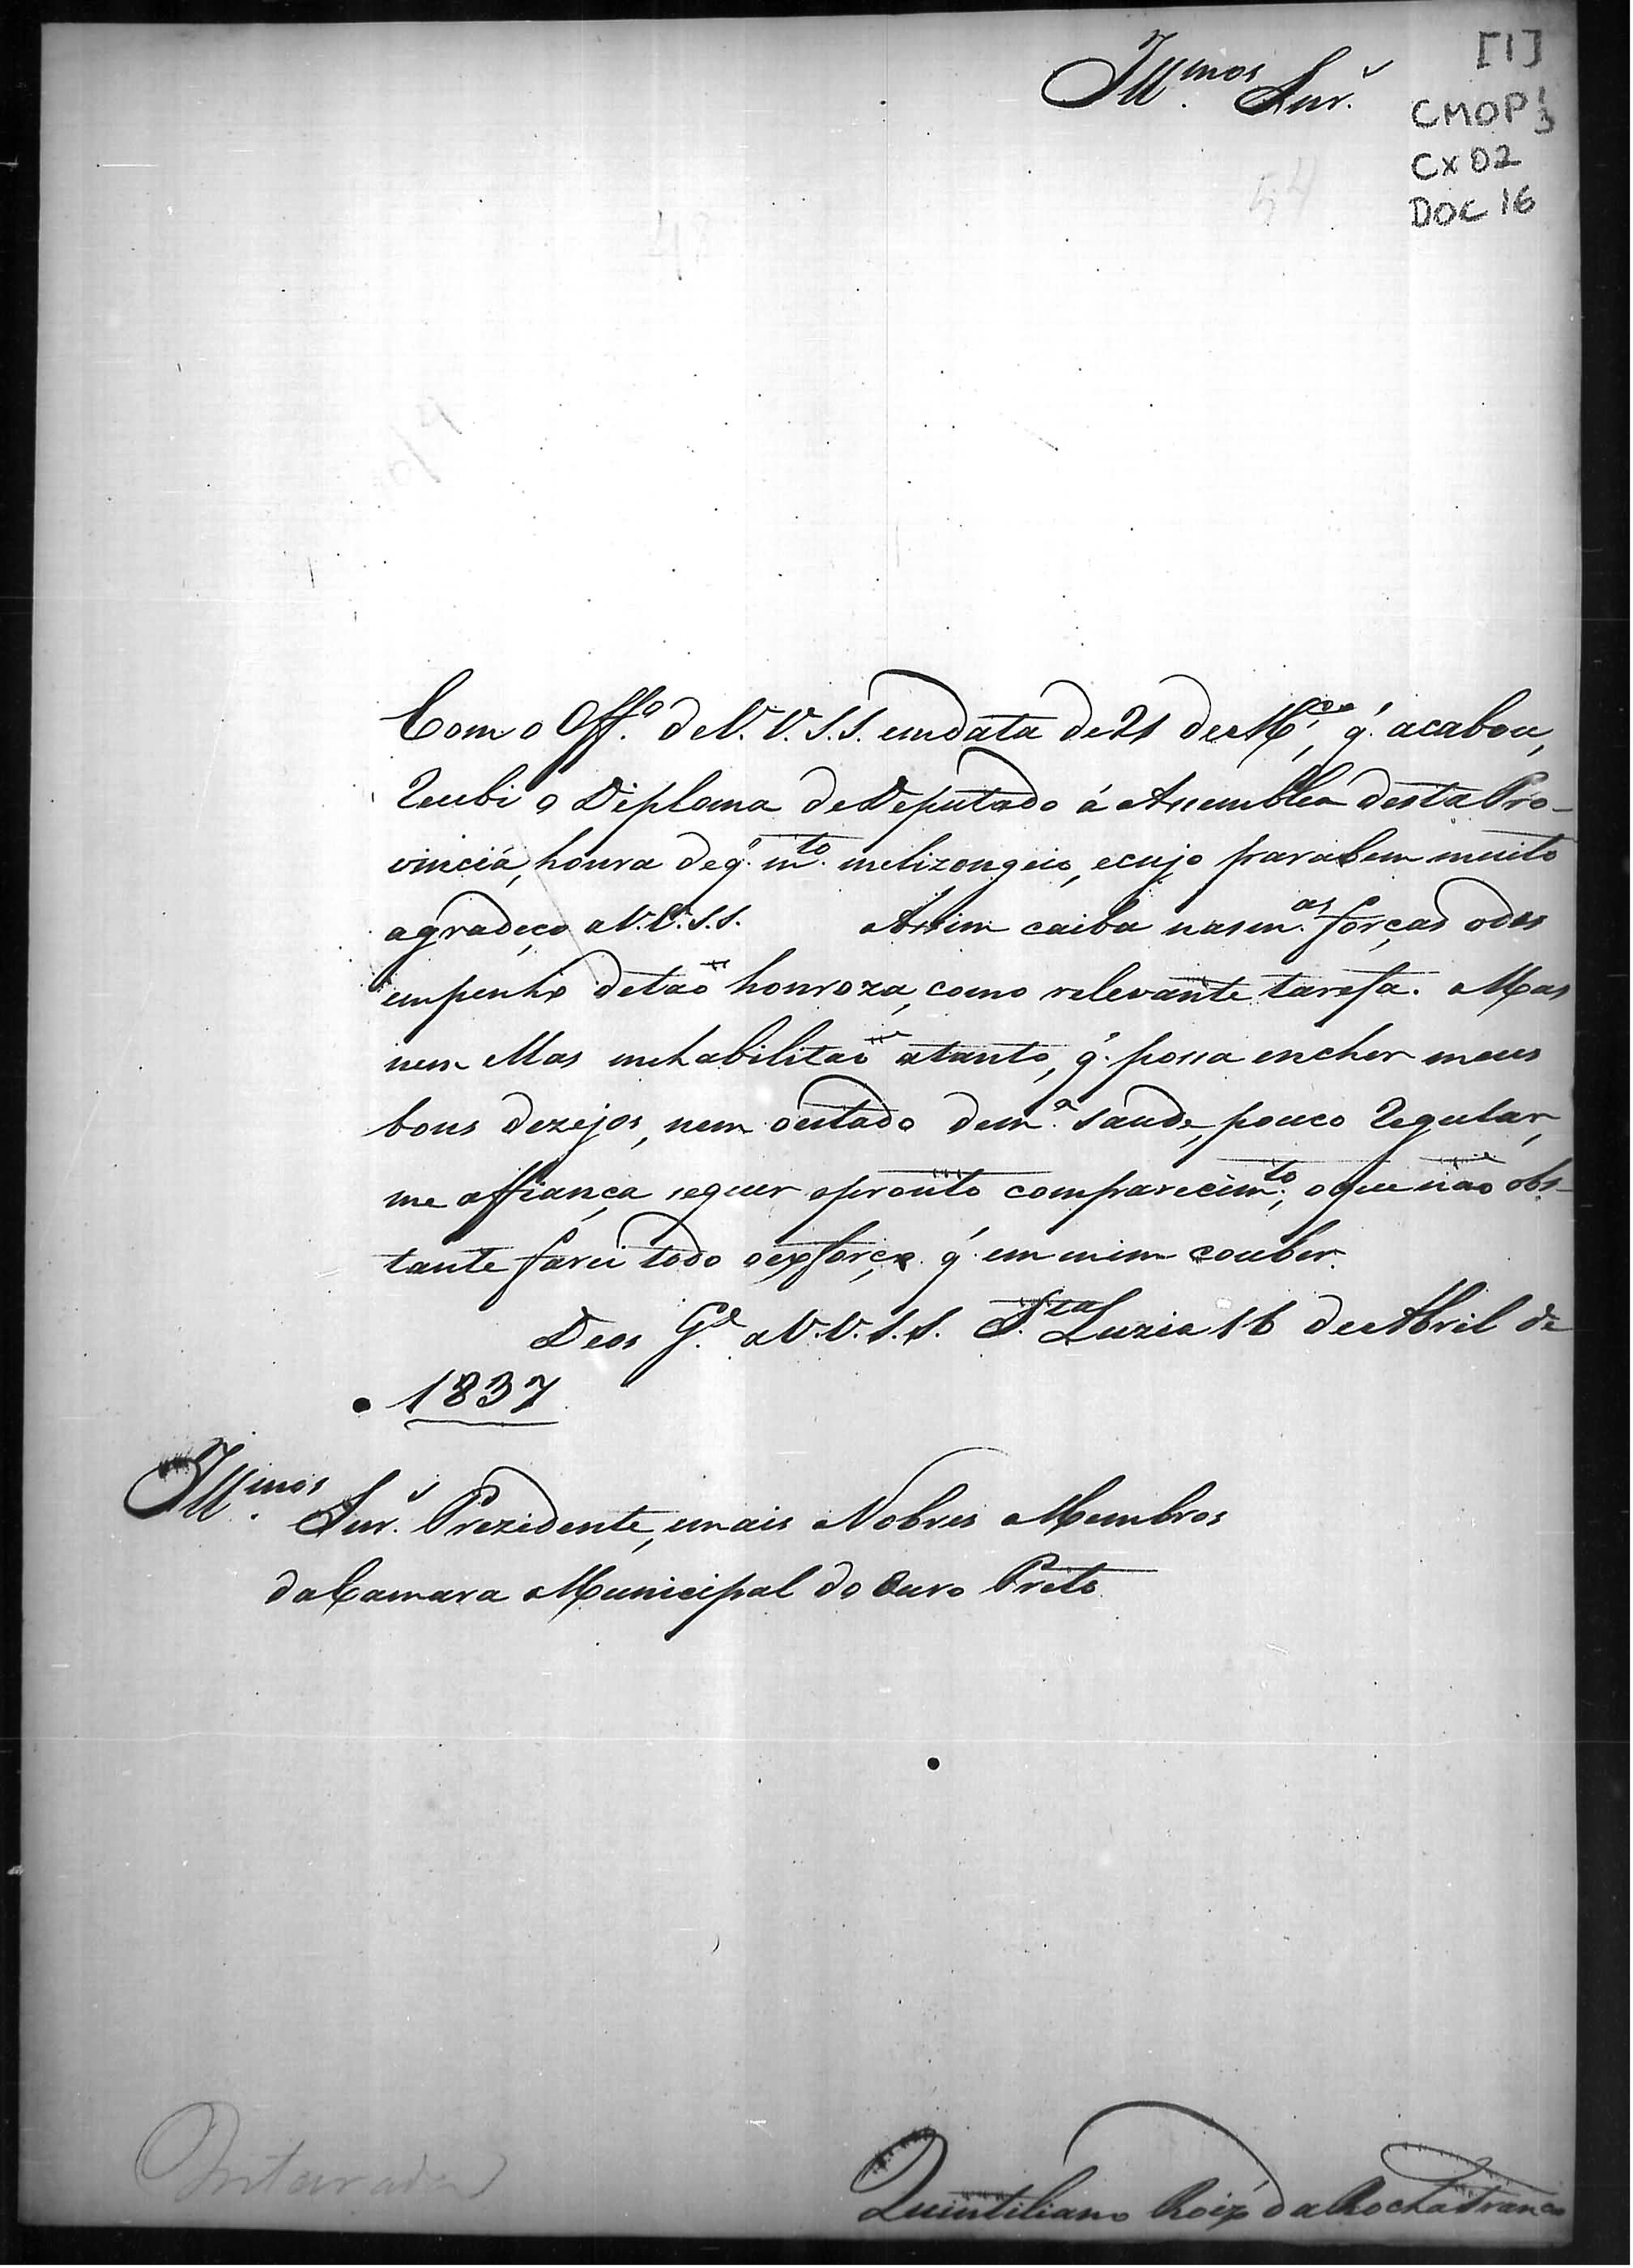 Ill.mos Snr.s
[1]
CMOP
Cx 02
DOC 16
54
Com o Off.º de V. V. S. S. em data de 21 de M.ço, q' acabou,
recebi o Diploma de Deputado á Assemblea desta Pro-
vincia, honra de q' m.to me lizongeio, e cujo parabem muito
agradeço a V. V. S. S. Assim caiba nas m.as forças o des
empenho de taõ honroza, como relevante tarefa. Mas
nem ellas me habilitaõ a tanto, q' possa encher meus
bons dezejos, nem o estado de m.a saude, pouco regular,
me affiança sequer o pronto comparecim.to; o que naõ obs-
tante farei todo o exforço q' em mim couber.
Deos G.e a V. V. S. S. S.ta Luzia 16 de Abril de
1837
Ill.mos Snr.s Prezidente, e mais Nobres Membros
da Camara Municipal do Ouro Preto
Inteirada
Quintiliano Roiz da Rocha Franco